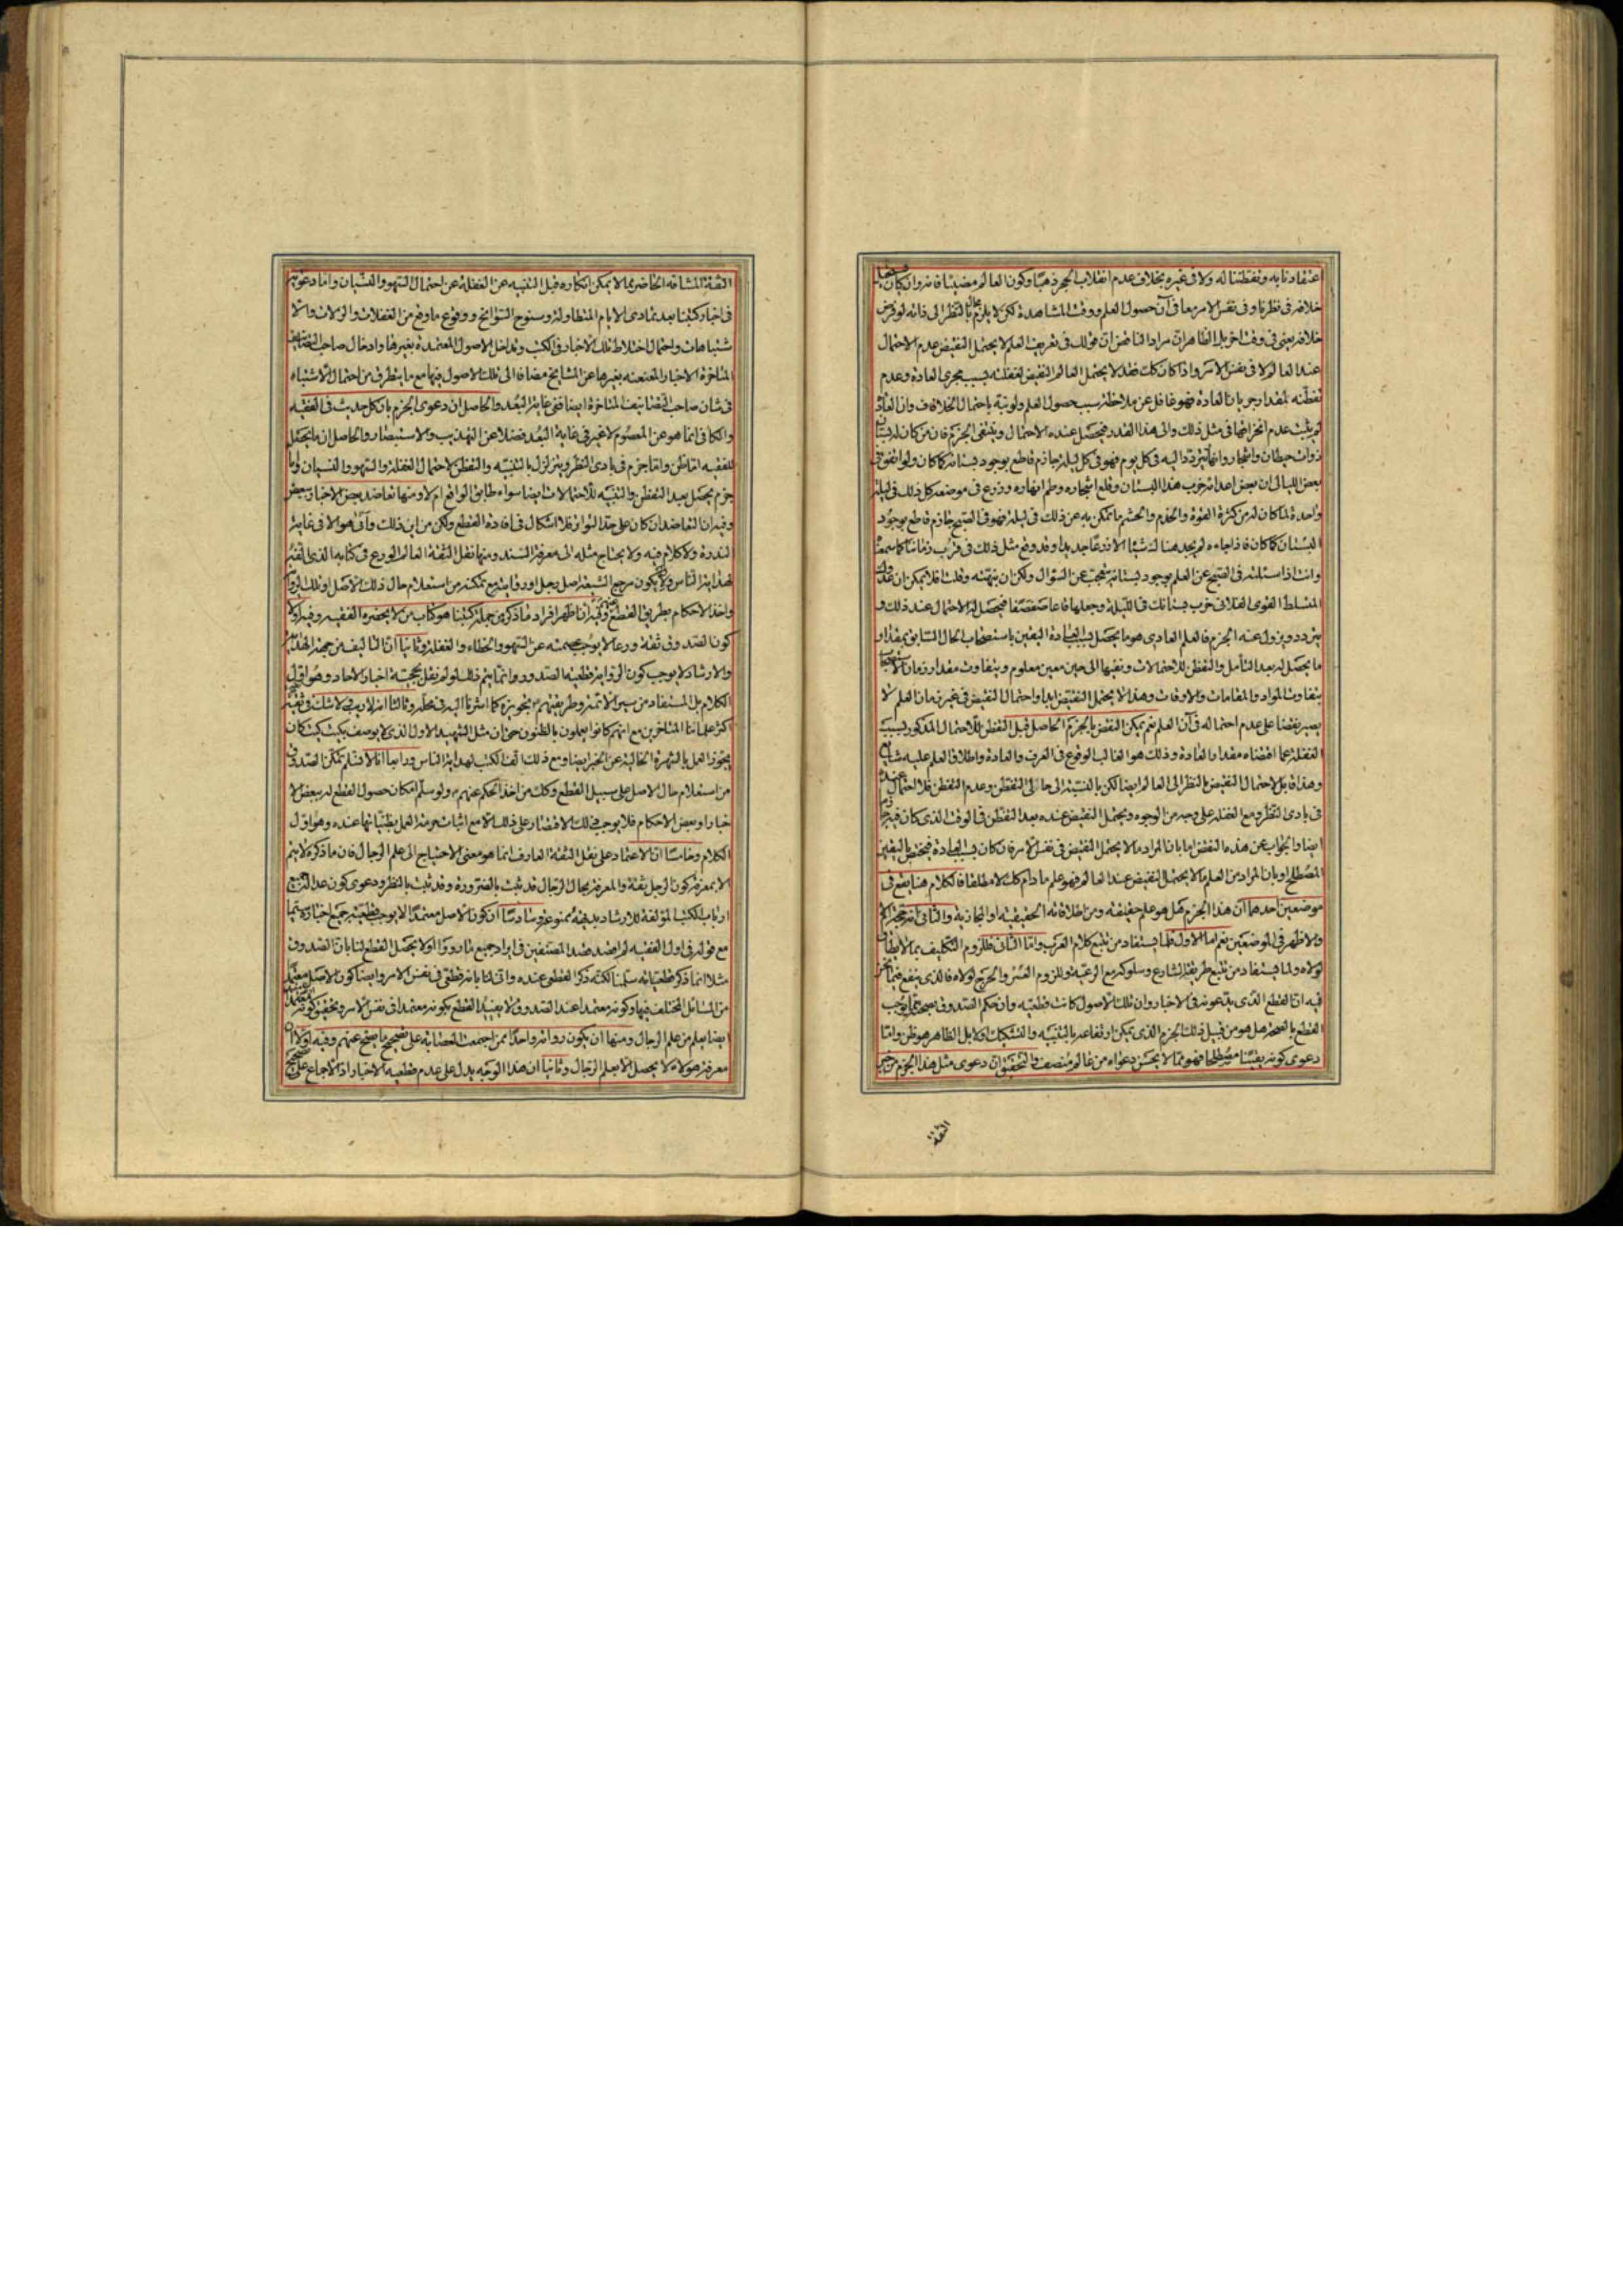 عتقادنا به وتفطننا له ولا فى غيره بخلاف عدم انقلاب الحجر ذهبا وكون العالم مضيئا فانه وان كان
خلافه فى نظرنا وفى نفس الامر معا فى آن حصول العلم ووقت المشاهدة لكن لا يلزم محال بالنظر الى ذاته لو فرض
خلافه يعنى فى وقت اخر بل الظاهر ان مراد الناقض ان قولك فى تعريف العلم لا يحتمل النقيض عدم الاحتمال
عند العالم لا فى نفس الامر واذا كان كلت فقد لا يحتمل العالم النقيض لغفلته بسبب مجرى العادة وعدم
تفطنه لمقدار جريان العادة فهو غافل عن ملاحظة سبب حصول العلم ولو نبه باحتمال الخلاف وان العادة
لم يثبت عدم انخرافها فى مثل ذلك والى هذا القدر فيحصل عنده الاحتمال وينتفى الجزم فان من كان له بستان
ذوات حيطان واشجار وانهار يتردد اليه فى كل يوم فهو فى كل ليلة جازم قاطع بوجود بستانه كما كان ولو اتفق فى
بعض الليالى ان بعض اعدائه خرب هذا البستان وقلع اشجاره وطم انهاره وزرع فى موضعه كل ذلك فى ليلة
واحدة لما كان له من كثرة القوة والخدم والحشم ما تمكن به عن ذلك فى ليلة فهو فى الصبح جازم قاطع بوجود
البستان كما كان فاذا جاءه لم يجد هنا له شيئا الا زرعا جديدا وقد وقع مثل ذلك فى قرب زماننا كما سمعنا
وانت اذا سئلته فى الصبح عن العلم بوجود بستانه يتعجب عن السؤال ولكن ان نبهته وقلت افلا يمكن ان عدوك
المسلط القوى الفلانى خرب بستانك فى الليلة وجعلها قاعا صفصفا فيحصل له الاحتمال عند ذلك و
يتردد ويزول عنه الجزم فالعلم العادى هو ما يحصل بسبب العادة اليقين باستصحاب الحال السابق بمقدار
ما يحصل له بعد التأمل والتفطن للاحتمالات ونفيها الى حين معين معلوم ويتفاوت مقدار زمان الاستصحاب
بتفاوت المواد والمقامات والاوقات وهذا لا يحتمل النقيض ابدا واحتمال النقيض فى غير زمان العلم لا
يصير نقضا على عدم احتماله فى آن العلم نعم يمكن النقض بالجزم الحاصل قبل التفطن للاحتمال المذكور بسبب
الغفلة عما اقتضاه مقدار العادة وذلك هو الغالب الوقوع فى العرف والعادة واطلاق العلم عليه شايع
وهذا قابل لاحتمال النقيض بالنظر الى العالم ايضا لكن بالنسبة الى حالى التفطن وعدم التفطن فلا احتمال عنده
فى بادى النظر ومع الغفلة على وجه من الوجوه ويحتمل النقيض عنده بعد التفطن فى الوقت الذى كان فيه جازما
ايضا والجواب عن هذه النقض اما بان المراد ما لا يحتمل النقيض فى نفس الامر فان كان بسبب العادة فيختص باليقين
المصطلح او بان المراد من العلم ما لا يحتمل النقيض عند العالم فهو علم ما دام كك لا مطلقا فالكلام هنا يقع فى
موضعين احدهما ان هذا الجزم هل هو علم حقيقة ومن اطلاقاته الحقيقية او المجازية والثانى انه حجة ام لا
والاظهر فى الموضعين نعم اما الاول فلما يستفاد من تتبع كلام العرب واما الثانى فللزوم التكليف بما لا يطاق
لولاه ولما يستفاد من تتبع طريقة الشارع وسلوكه مع الرعية وللزوم العسر والحرج لولاه فالذى ينفع فيما نحن
فيه ان القطع الذى يدعونه فى الاخبار وان تلك الاصول كانت قطعية وان حكم الصدوق بصحتها يوجب
القطع بالصحة هل هو من قبيل ذلك الجزم الذى يمكن ارتفاعه بالتنبيه والتشكيك ولا بل الظاهر هو ظن واما
دعوى كونه يقينا مصطلحا فهو مما لا يحسن دعواه من عالم منصف والتحقيق ان دعوى مثل هذا الجزم من خبر
الثقة
الثقة المشافه الحاضر مما لا يمكن انكاره قبل التنبيه عن الغفلة عن احتمال السهو والنسيان واما دعويه
فى اخبار كتبنا بعد تمادى الايام المتطاولة وسنوح السوانح ووقوع ما وقع من الغفلات والزلات والا
شتباهات واحتمال اختلاط تلك الاخبار فى الكتب وتداخل الاصول المعتمدة بغيرها وادخال صاحب التصانيف
المتاخرة الاخبار المعنعنه بغيرها عن المشايخ مضافا الى تلك الاصول فيها مع ما يتطرق من احتمال الاشتباه
فى شان صاحب التصانيف المتاخرة ايضا ففى غاية البعد والحاصل ان دعوى الجزم بان كل حديث فى الفقيه
والكافى انما هو عن المعصوم لا غير فى غاية البعد فضلا عن التهذيب والاستبصار والحاصل ان ما يحصل
للفقيه اما ظن واما جزم فى بادى النظر ويتزلزل بالتنبيه والتفطن لاحتمال الغفلة والسهو والنسيان واما
جزم يحصل بعد التفطن والتنبيه للاحتمالات ايضا سواء طابق الواقع ام لا ومنها تعاضد بعض الاخبار ببعض
وفيه ان التعاضد ان كان على حد التواتر فلا اشكال فى افادة القطع ولكن من اين ذلك وأنى هو الا فى غاية
الندرة ولا كلام فيه ولا يحتاج مثله الى معرفة السند ومنها نقل الثقة العالم الورع فى كتابه الذى الفه
لهداية الناس ولان يكون مرجع الشيعة اصل رجل او رواية مع تمكنه من استعلام حال ذلك الاصل او تلك الرواية
واخذ الاحكام بطريق القطع عنهم وفيه ان اظهر افراد ما ذكر من جملة كتبنا هو كتاب من لا يحضره الفقيه وفيه اولا
كون الصدوق ثقة ورعا لا يوجب عصمته عن السهو والخطاء والغفلة وثانيا ان التاليف من جهة الهداية
والارشاد لا يوجب كون الرواية قطعية الصدور وانما يتم ذلك لو لم نقل بحجية اخبار الاحاد وهو اول
الكلام بل المستفاد من سير الائمة وطريقتهم تجويزه كما اشرنا اليه فى محله وثالثا انه لا ريب ولا شك فى ثقة
اكثر علمائنا المتاخرين مع انهم كانوا يعملون بالظنون حتى ان مثل الشهيد الاول الذى لا يوصف بكيت كيت كان
يجوز العمل بالشهرة الخالية عن الخبر ايضا ومع ذلك الف الكتب لهداية الناس ورابعا انا لا نسلم تمكن الصدوق
من استعلام حال الاصل على سبيل القطع وكك من اخذ الحكم عنهم ولو سلم امكان حصول القطع له ببعض الا
خبار او بعض الاحكام فلا يوجب ذلك الاقتصار على ذلك الا مع اثبات حرمة العمل بظنياتها عنده وهو اول
الكلام وخامسا ان الاعتماد على نقل الثقة العارف انما هو معنى الاحتياج الى علم الرجال فان ما ذكره لا يتم
الا بمعرفة كون الرجل ثقة والمعرفة بحال الرجال قد تثبت بالضرورة وقد تثبت بالنظر ودعوى كون عدالة جميع
ارباب الكتب المؤلفة للارشاد بديهية ممنوعة وسادسا ان كون الاصل معتمدا لا يوجب قطعية جميع اخباره سيما
مع قوله فى اول الفقيه لم اقصد قصد المصنفين فى ايراد جميع ما رووا او لا يحصل القطع لنا بان الصدوق
مثلا انما ذكر قطعياته سلمنا لكنه ذكر القطعى عنده وانى لنا بانه قطعى فى نفس الامر وايضا كون الاصل معتمدا
من المسائل المختلف فيها وكونه معتمدا عند الصدوق لا يفيد القطع بكونه معتمدا فى نفس الامر وتحقق كونه معتمدا
ايضا يعلم من علم الرجال ومنها ان يكون رواته واحدا ممن اجمعت العصابة على تصحيح ما يصح عنهم وفيه اولا ان
معرفة هؤلاء لا يحصل الا بعلم الرجال وثانيا ان هذا الوجه يدل على عدم قطعية الاخبار اذ الاجماع على تصحيح